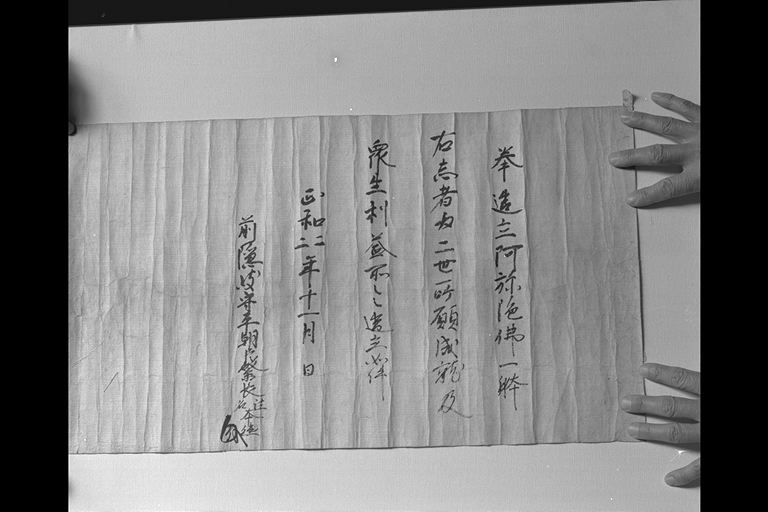 奉造立阿弥陀佛一躰
右志者為二世所願成就及
衆生利益所之造立如件
正和二二年十一月 日
前隠岐守平朝臣繁長
法名